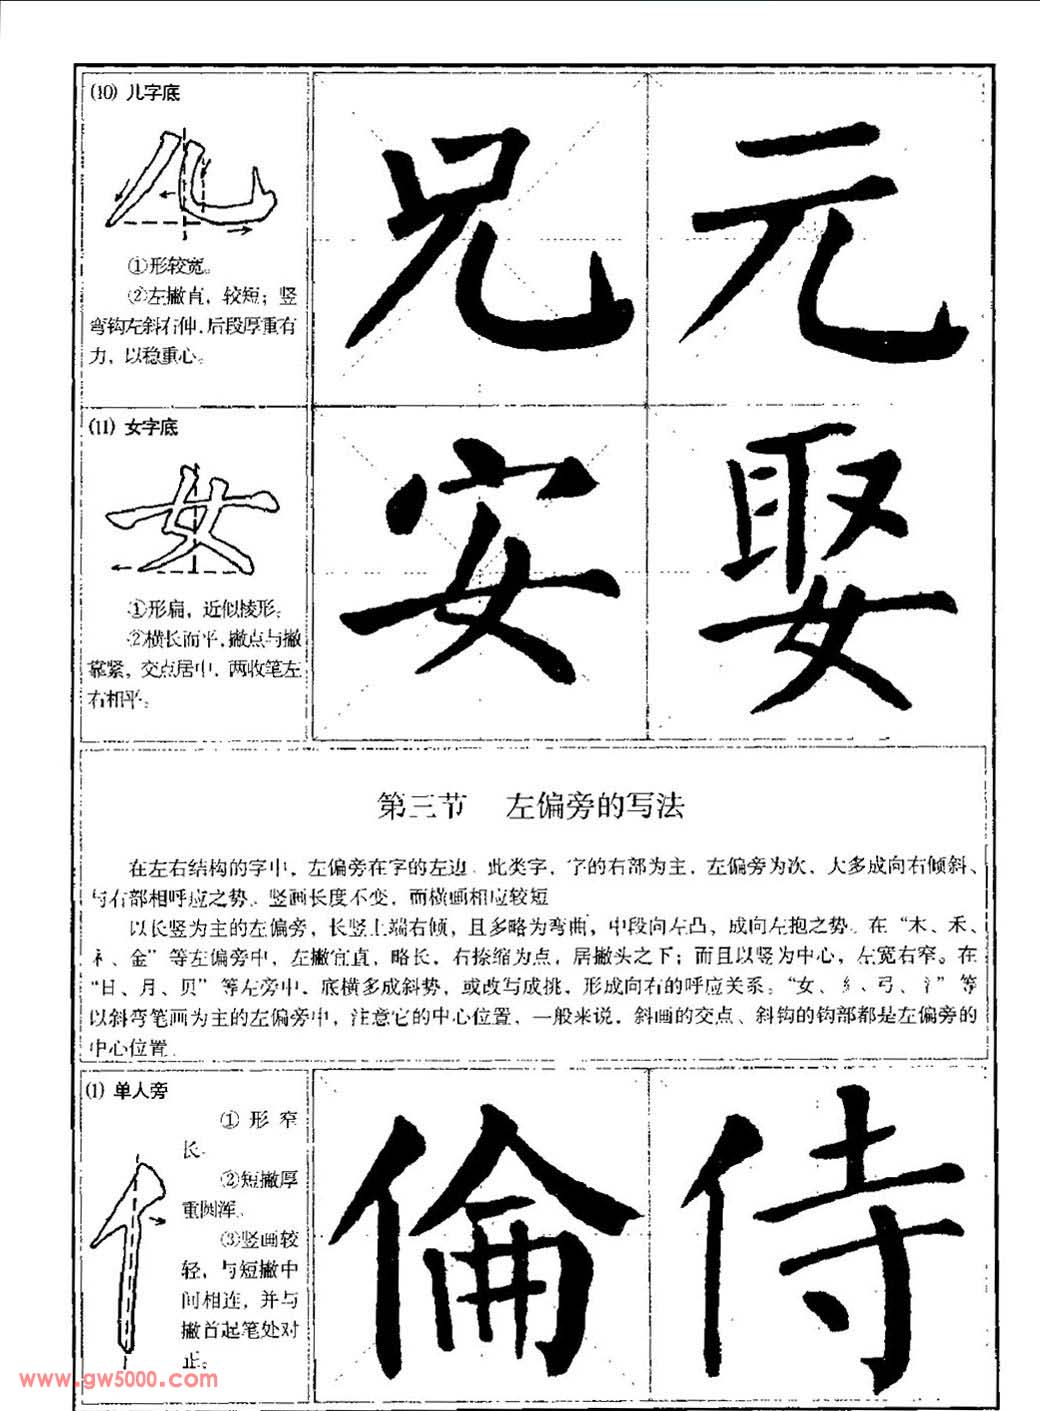 (10) 儿字底
①形较宽。
②左撇直，较短；竖
弯钩左斜右伸，后段厚重有
力，以稳重心。
兄 元
(11) 女字底
①形扁，近似棱形。
②横长而平，撇点与撇
靠紧，交点居中，两收笔左
右相平。
安 娶
第三节 左偏旁的写法
在左右结构的字中，左偏旁在字的左边。此类字，字的右部为主，左偏旁为次，大多成向右倾斜、
与右部相呼应之势。竖画长度不变，而横画相应较短
以长竖为主的左偏旁，长竖上端右倾，且多略为弯曲，中段向左凸，成向左抱之势。在“木、禾、
礻、金”等左偏旁中，左撇宜直，略长，右捺缩为点，居撇头之下；而且以竖为中心，左宽右窄。在
“日、月、贝”等左旁中，底横多成斜势，或改写成挑，形成向右的呼应关系。“女、纟、弓、犭”等
以斜弯笔画为主的左偏旁中，注意它的中心位置，一般来说，斜画的交点、斜钩的钩部都是左偏旁的
中心位置
(1) 单人旁
①形窄
长。
②短撇厚
重圆浑。
③竖画较
轻，与短撇中
间相连，并与
撇首起笔处对
正。
倫 侍
www.gw5000.com